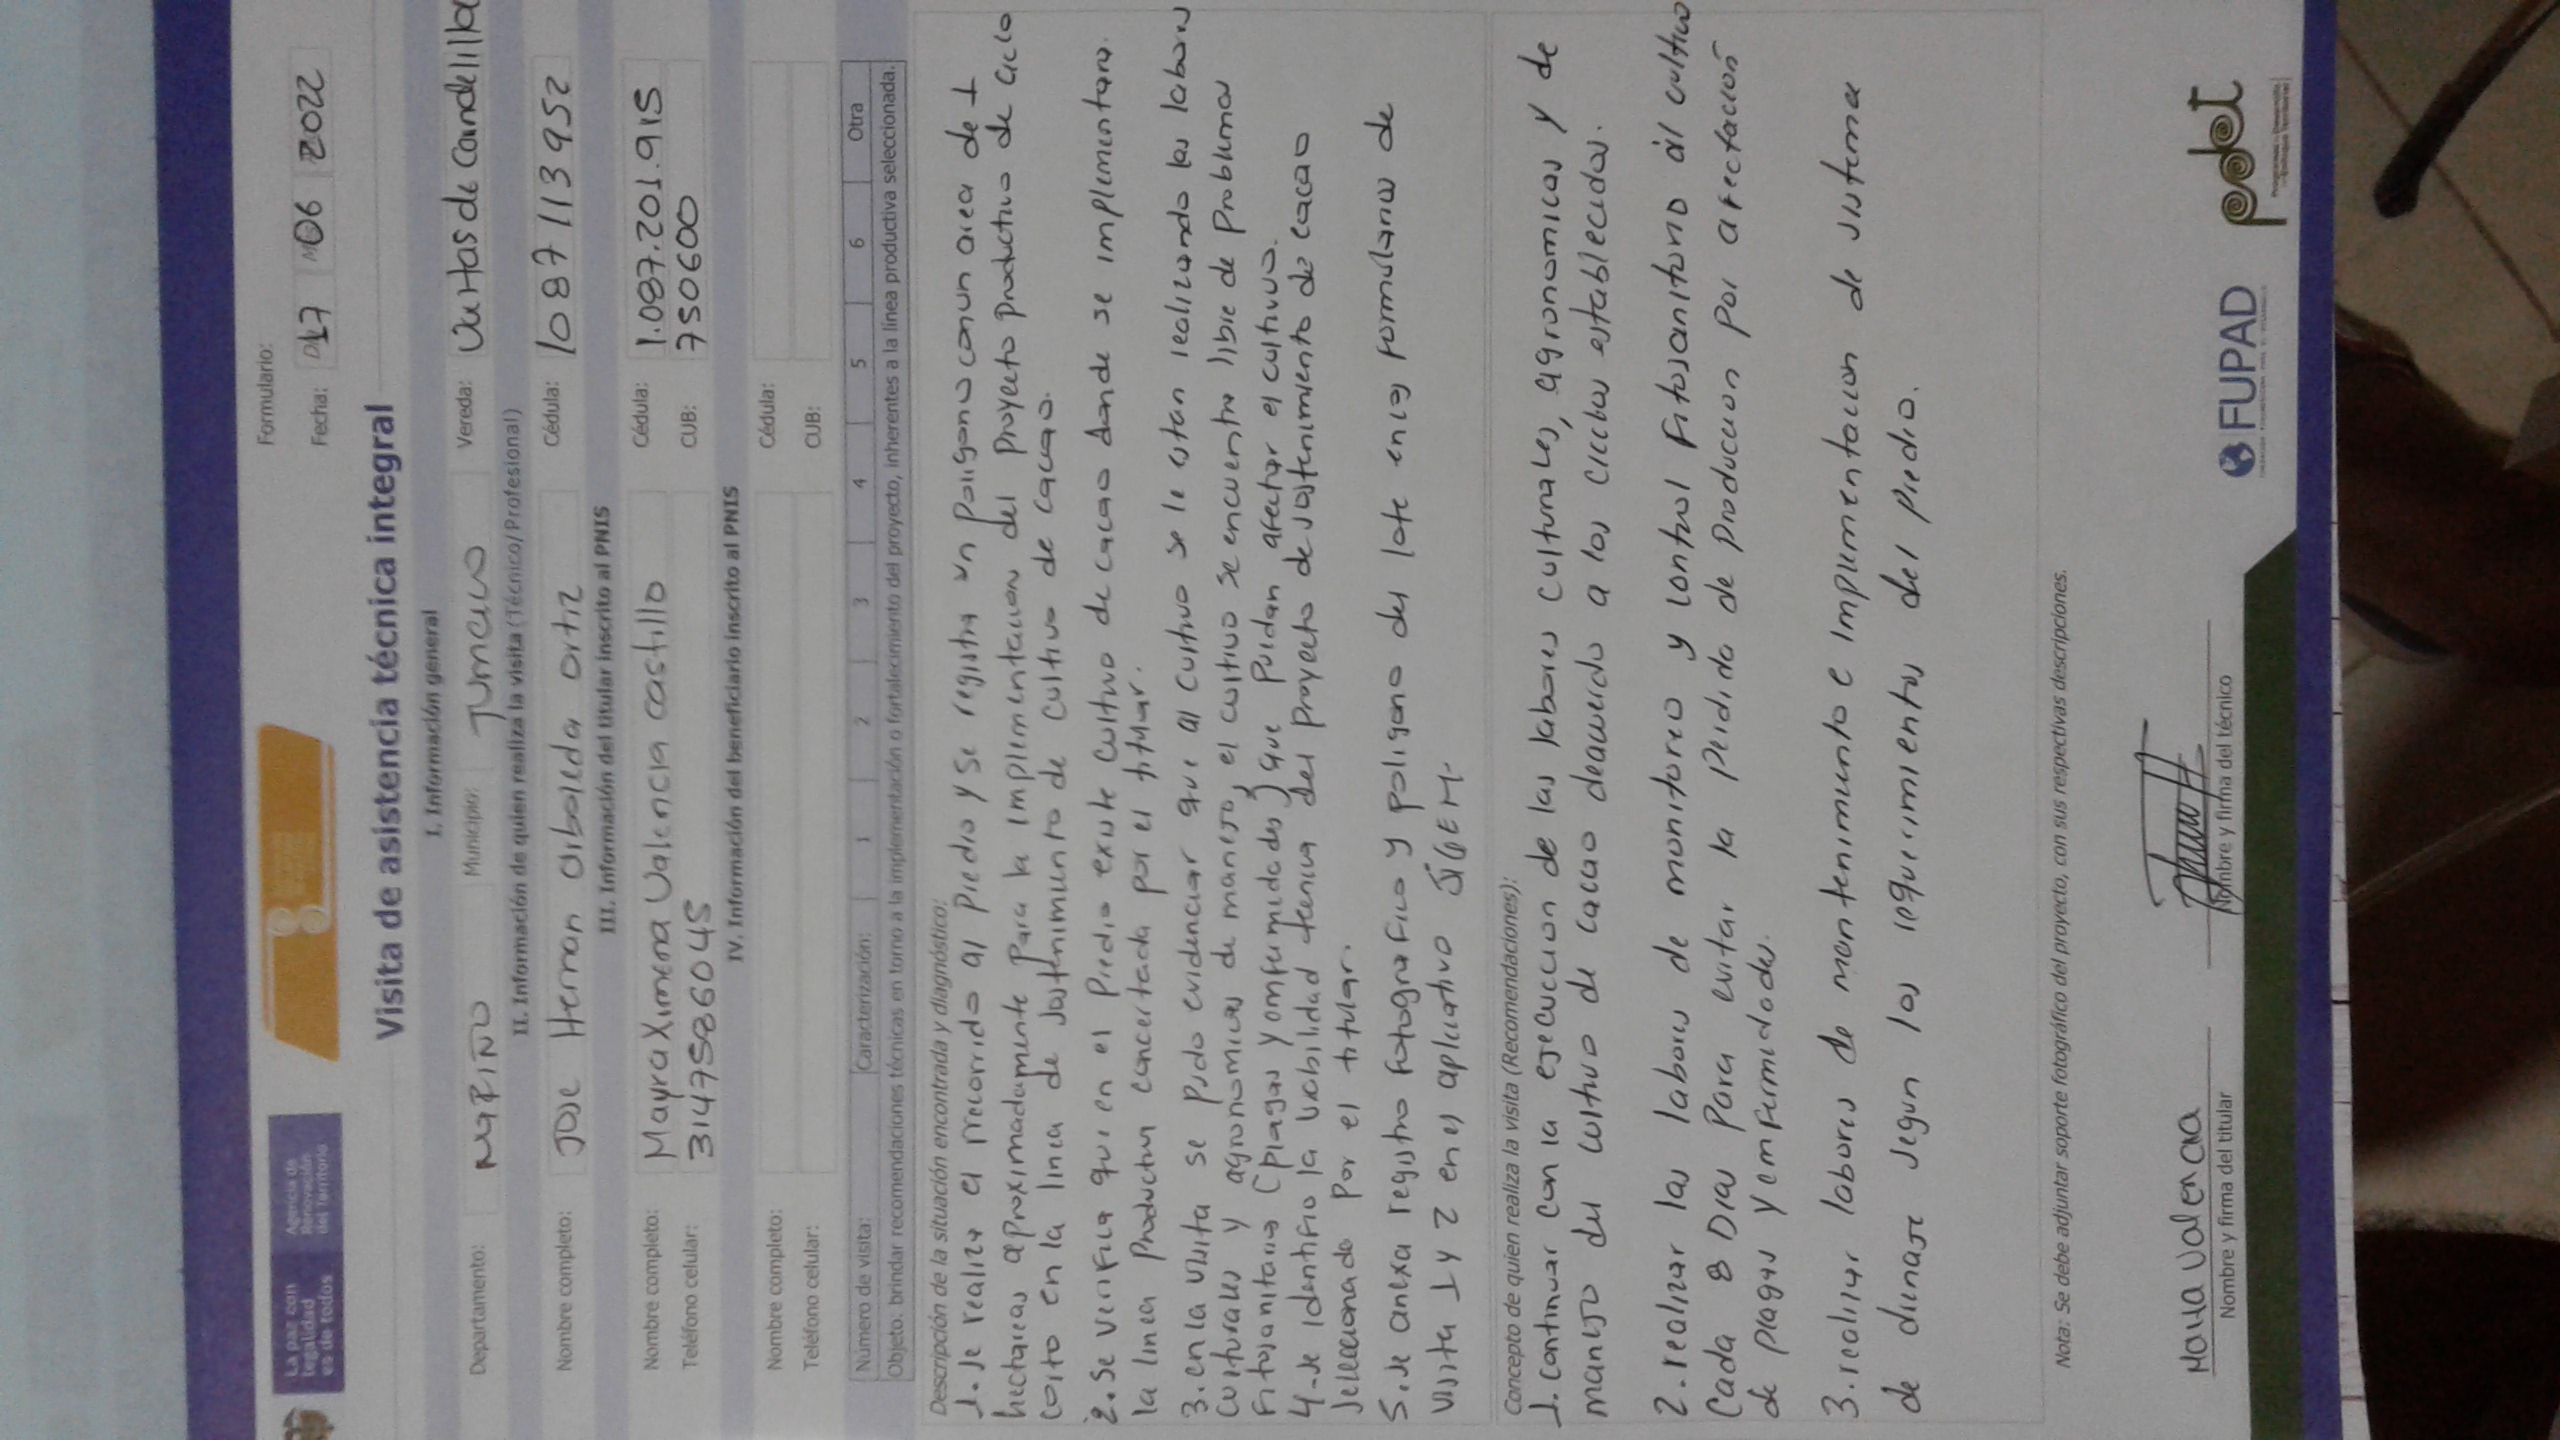 La paz con
legalidad
es de todos
Agencia de
Renovación
del Territorio
Formulario:
Fecha: D17 M06 2022
Visita de asistencia técnica integral
I. Información general
Departamento: NARIÑO Municipio: TUMACO Vereda: Vueltas de Candelillas
II. Información de quien realiza la visita (Técnico/Profesional)
Nombre completo: Jose Hernan Arboleda ortiz Cédula: 1087113952
III. Información del titular inscrito al PNIS
Nombre completo: Mayra Ximena Valencia castillo Cédula: 1.087.201.915
Teléfono celular: 3147586045 CUB: 750600
IV. Información del beneficiario inscrito al PNIS
Nombre completo: Cédula:
Teléfono celular: CUB:
Número de visita: Caracterización: 1 2 3 4 5 6 Otra
Objeto: brindar recomendaciones técnicas en torno a la implementación o fortalecimiento del proyecto, inherentes a la línea productiva seleccionada.
Descripción de la situación encontrada y diagnóstico:
1. se realiza el recorrido al Predio y se registra un Poligono con un area de 1
hectareas aproximadamente Para la implementacion del Proyecto Productivo de ciclo
corto en la linea de sostenimiento de cultivo de cacao.
2. Se verifica que en el Predio existe cultivo de cacao donde se implementara
la linea Productiva concertada por el titular.
3. en la visita se pudo evidenciar que al cultivo se le estan realizando las labores
culturales y agronomicas de manejo, el cultivo se encuentra libre de Problemas
Fitosanitarios (plagas y enfermedades) que Puedan afectar el cultivo.
4-se identifio la viabilidad tecnica del proyecto de sostenimiento de cacao
seleccionado por el titular.
5. se anexa registro fotografico y poligono del lote en los formularios de
visita 1 y 2 en el aplicativo SIGEM.
Concepto de quien realiza la visita (Recomendaciones):
1. continuar con la ejecuccion de las labores culturales, agronomicas y de
manejo del cultivo de cacao deacuerdo a los ciclos establecidos.
2. realizar las labores de monitoreo y control Fitosanitario al cultivo
Cada 8 Dias Para evitar la Perdida de Produccion Por afectacion
de plagas y enfermedades.
3. realizar labores de mantenimiento e implementacion de sistema
de drenaje segun los requerimientos del predio.
Nota: Se debe adjuntar soporte fotográfico del proyecto, con sus respectivas descripciones.
Maya Valencia
Nombre y firma del titular
Nombre y firma del técnico
FUPAD
pdet